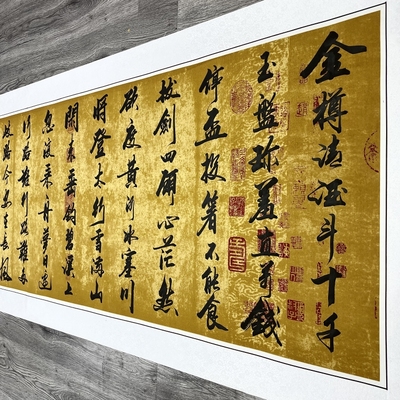 金樽清酒斗十千
玉盤珎羞直万錢
停盃投箸不能食
拔劍四顧心茫然
欲度黄河冰塞川
將登太行雪滿山
閑來垂釣碧溪上
忽復乘舟夢日邊
行路難行路難多
歧路今安在長風